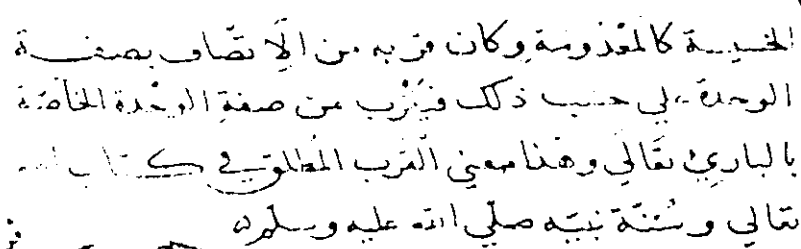 الخسيسة كالمعْدومة وكان قربه من الاتّصاف بصفة
الوحدة على حسب ذلك فيَقْرُب من صفةِ الوحْدة الخاصّة
بالباريْ تعَالي وهذا معني القرب المُطلق في كتاب الله
تعالي وسُنّة نبيّه صلّي الله عليه وسلم